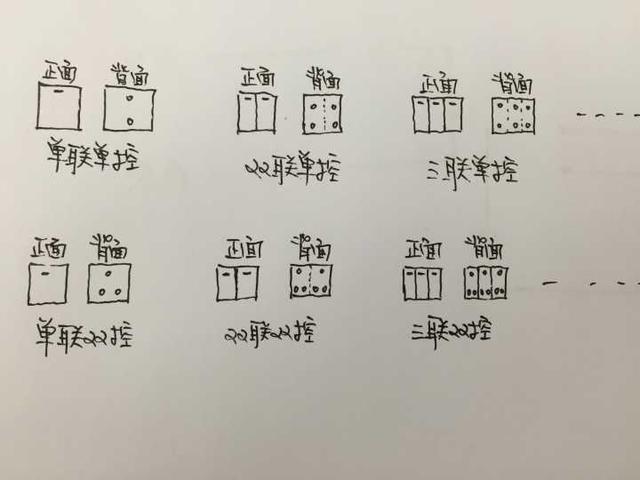 正面 背面 正面 背面 正面 背面
单联单控 双联单控 三联单控
正面 背面 正面 背面 正面 背面
单联双控 双联双控 三联双控